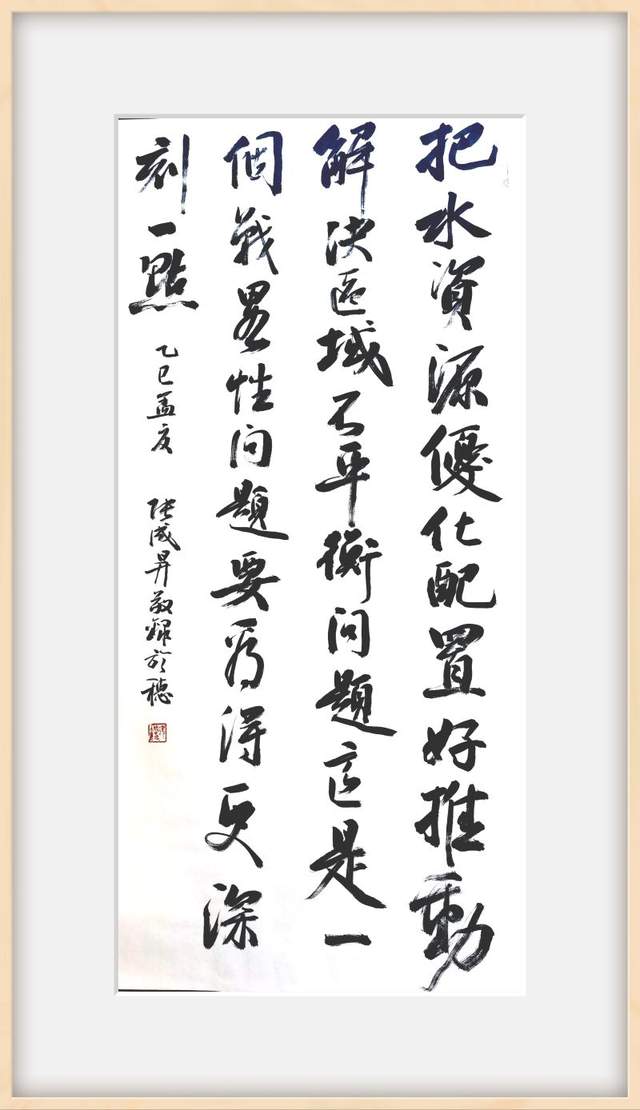 把水資源優化配置好推動
解決區域不平衡問題這是一
個戰畧性問題要看得更深
刻一點
乙巳孟夏 張成昇敬於穗